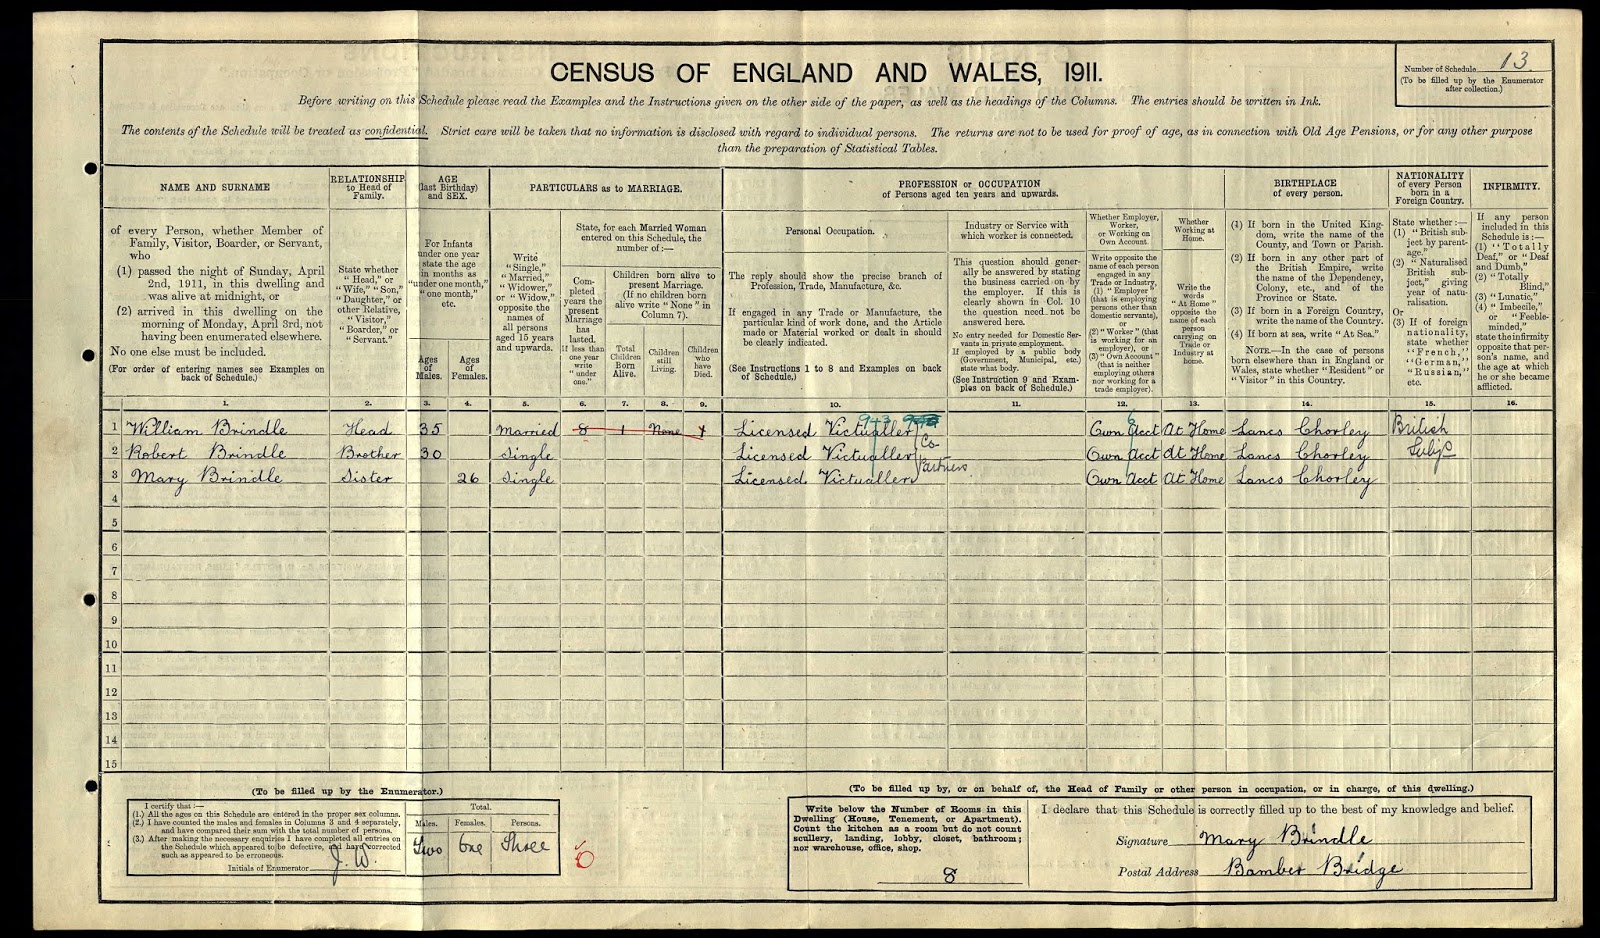 CENSUS OF ENGLAND AND WALES, 1911.
Number of Schedule 13.
(To be filled up by the Enumerator
after collection.)
Before writing on this Schedule please read the Examples and the Instructions given on the other side of the paper, as well as the headings of the Columns. The entries should be written in Ink.
The contents of the Schedule will be treated as confidential. Strict care will be taken that no information is disclosed with regard to individual persons. The returns are not to be used for proof of age, as in connection with Old Age Pensions, or for any other purpose
than the preparation of Statistical Tables.
NAME AND SURNAME
of every Person, whether Member of
Family, Visitor, Boarder, or Servant,
who
(1) passed the night of Sunday, April
2nd, 1911, in this dwelling and
was alive at midnight, or
(2) arrived in this dwelling on the
morning of Monday, April 3rd, not
having been enumerated elsewhere.
No one else must be included.
(For order of entering names see Examples on
back of Schedule.)
RELATIONSHIP
to Head of
Family.
State whether
"Head," or
"Wife," "Son,"
"Daughter," or
other Relative,
"Visitor,"
"Boarder," or
"Servant."
AGE
(last Birthday)
and SEX.
For Infants
under one year
state the age
in months as
"under one month,"
"one month,"
etc.
Ages
of
Males.
Ages
of
Females.
PARTICULARS as to MARRIAGE.
Write
"Single,"
"Married,"
"Widower,"
or "Widow,"
opposite the
names of
all persons
aged 15 years
and upwards.
State, for each Married Woman
entered on this Schedule, the
number of :—
Completed
years the
present
Marriage
has
lasted.
If less than
one year
write
"under
one."
Children born alive to
present Marriage.
(If no children born
alive write "None" in
Column 7).
Total
Children
Born
Alive.
Children
still
Living.
Children
who
have
Died.
PROFESSION or OCCUPATION
of Persons aged ten years and upwards.
Personal Occupation.
The reply should show the precise branch of
Profession, Trade, Manufacture, &c.
If engaged in any Trade or Manufacture, the
particular kind of work done, and the Article
made or Material worked or dealt in should
be clearly indicated.
(See Instructions 1 to 8 and Examples on back
of Schedule.)
Industry or Service with
which worker is connected.
This question should gener-
ally be answered by stating
the business carried on by
the employer. If this is
clearly shown in Col. 10
the question need not be
answered here.
No entry needed for Domestic Ser-
vants in private employment.
If employed by a public body
(Government, Municipal, etc.)
state what body.
(See Instruction 9 and Exam-
ples on back of Schedule.)
Whether Employer,
Worker,
or Working on
Own Account.
Write opposite the
name of each person
engaged in any
Trade or Industry,
(1) "Employer"
(that is employing
persons other than
domestic servants),
or
(2) "Worker" (that
is working for an
employer), or
(3) "Own Account"
(that is neither
employing others
nor working for a
trade employer).
Whether
Working at
Home.
Write the
words
"At Home"
opposite the
name of each
person
carrying on
Trade or
Industry at
home.
BIRTHPLACE
of every person.
(1) If born in the United King-
dom, write the name of the
County, and Town or Parish.
(2) If born in any other part of
the British Empire, write the
name of the Dependency,
Colony, etc., and of the
Province or State.
(3) If born in a Foreign Country,
write the name of the Country.
(4) If born at sea, write "At Sea."
NOTE.—In the case of persons
born elsewhere than in England or
Wales, state whether "Resident" or
"Visitor" in this Country.
NATIONALITY
of every Person
born in a
Foreign Country.
State whether :—
(1) "British sub-
ject by parent-
age."
(2) "Naturalised
British sub-
ject," giving
year of natu-
ralisation.
Or
(3) If of foreign
nationality,
state whether
"French,"
"German,"
"Russian,"
etc.
INFIRMITY.
If any person
included in this
Schedule is :—
(1) "Totally
Deaf," or "Deaf
and Dumb,"
(2) "Totally
Blind,"
(3) "Lunatic,"
(4) "Imbecile,"
or "Feeble-
minded,"
state the infirmity
opposite that per-
son's name, and
the age at which
he or she became
afflicted.
1. 2. 3. 4. 5. 6. 7. 8. 9. 10. 11. 12. 13. 14. 15. 16.
943
6
1 William Brindle Head 35 Married 8 1 None 1 Licensed Victualler Own Acct At Home Lancs Chorley British
2 Robert Brindle Brother 30 Single Licensed Victualler Co- Own Acct At Home Lancs Chorley Subjs
3 Mary Brindle Sister 26 Single Licensed Victualler Partners Own Acct At Home Lancs Chorley
4
5
6
7
8
9
10
11
12
13
14
15
(To be filled up by the Enumerator.)
I certify that :—
(1.) All the ages on this Schedule are entered in the proper sex columns.
(2.) I have counted the males and females in Columns 3 and 4 separately,
and have compared their sum with the total number of persons.
(3.) After making the necessary enquiries I have completed all entries on
the Schedule which appeared to be defective, and have corrected
such as appeared to be erroneous.
Initials of Enumerator J. W.
Total.
Males. Females. Persons.
Two One Three
(To be filled up by, or on behalf of, the Head of Family or other person in occupation, or in charge, of this dwelling.)
Write below the Number of Rooms in this
Dwelling (House, Tenement, or Apartment).
Count the kitchen as a room but do not count
scullery, landing, lobby, closet, bathroom;
nor warehouse, office, shop.
8
I declare that this Schedule is correctly filled up to the best of my knowledge and belief.
Signature Mary Brindle
Postal Address Bamber Bridge